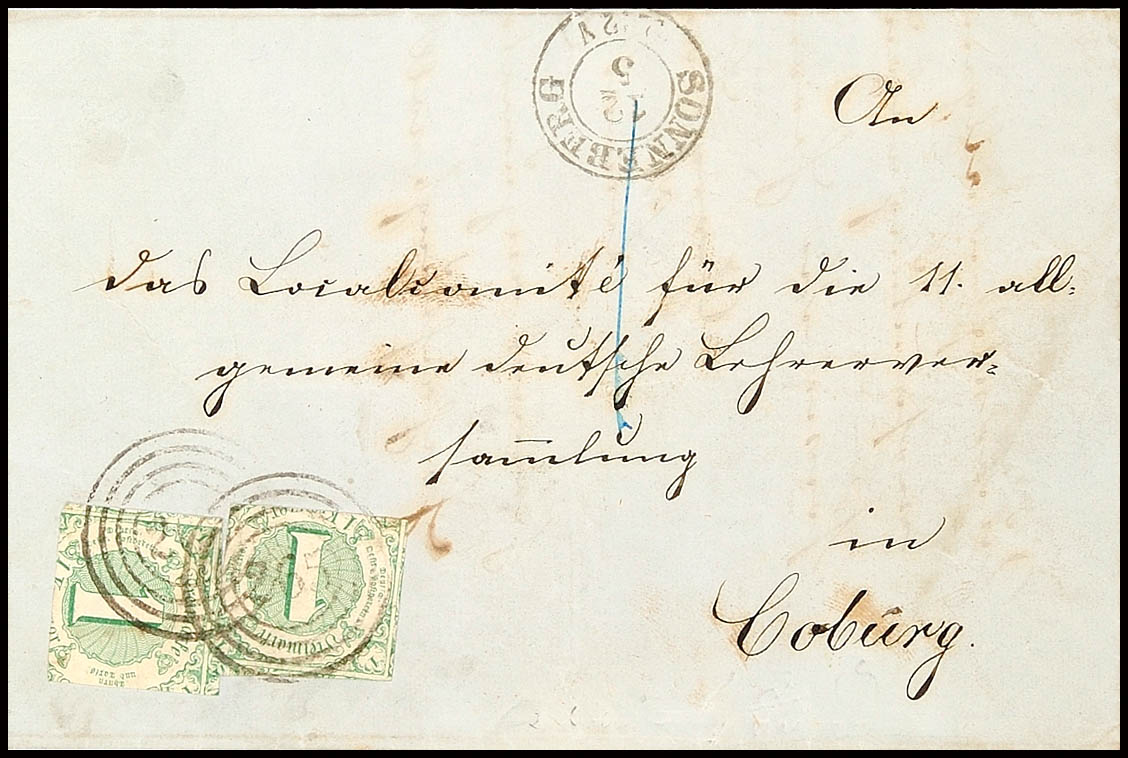 SONNEBERG
12
5
An
das Localcomité für die 11. all=
gemeine deutsche Lehrerver=
sam̄lung
in
Coburg.
1
1